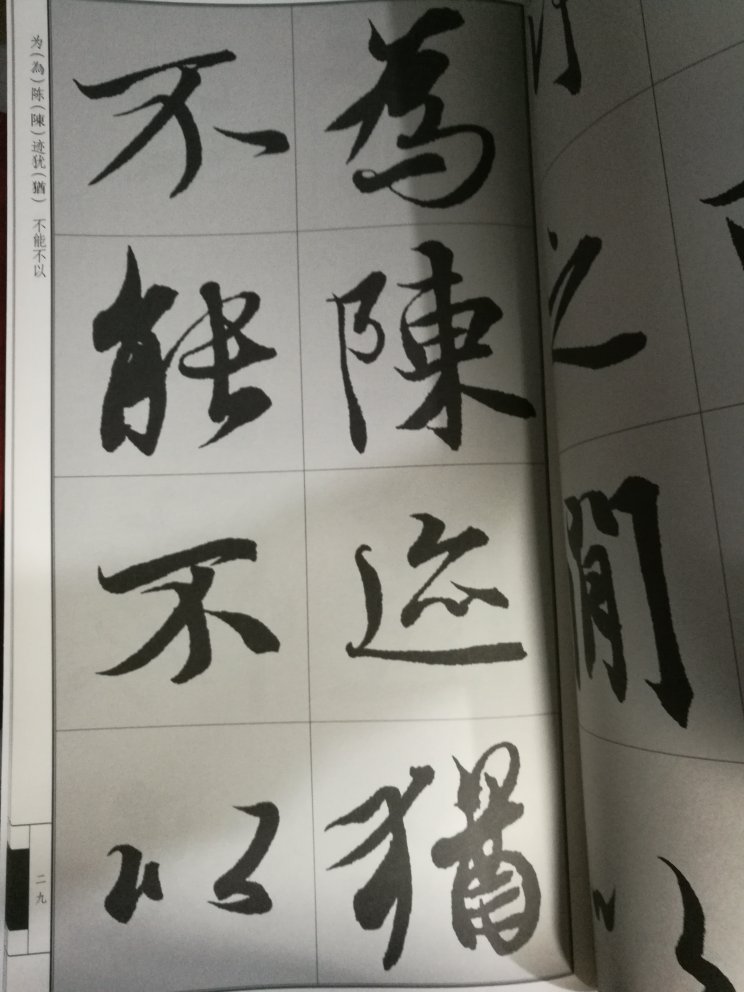 為陳迹猶
不能不以
为(為)陈(陳)迹犹(猶) 不能不以
二九